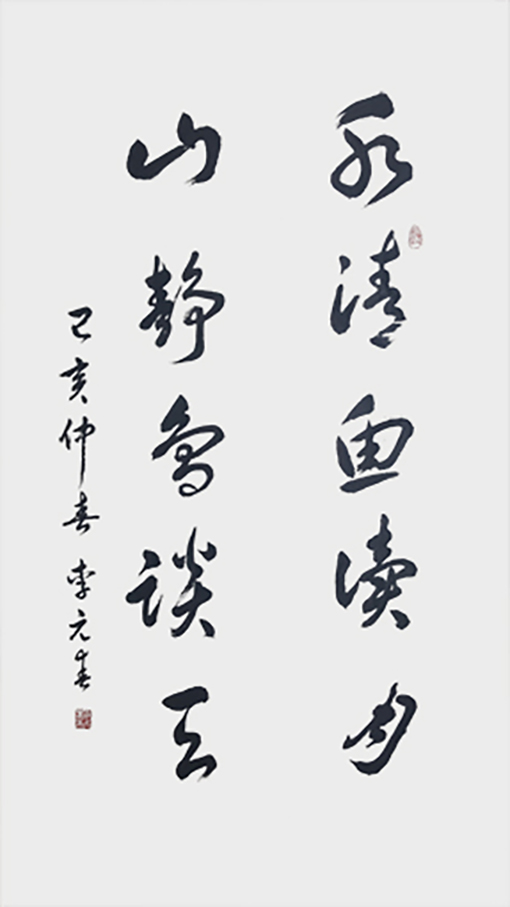 水清鱼读月
山静鸟谈天
己亥仲春 李元生